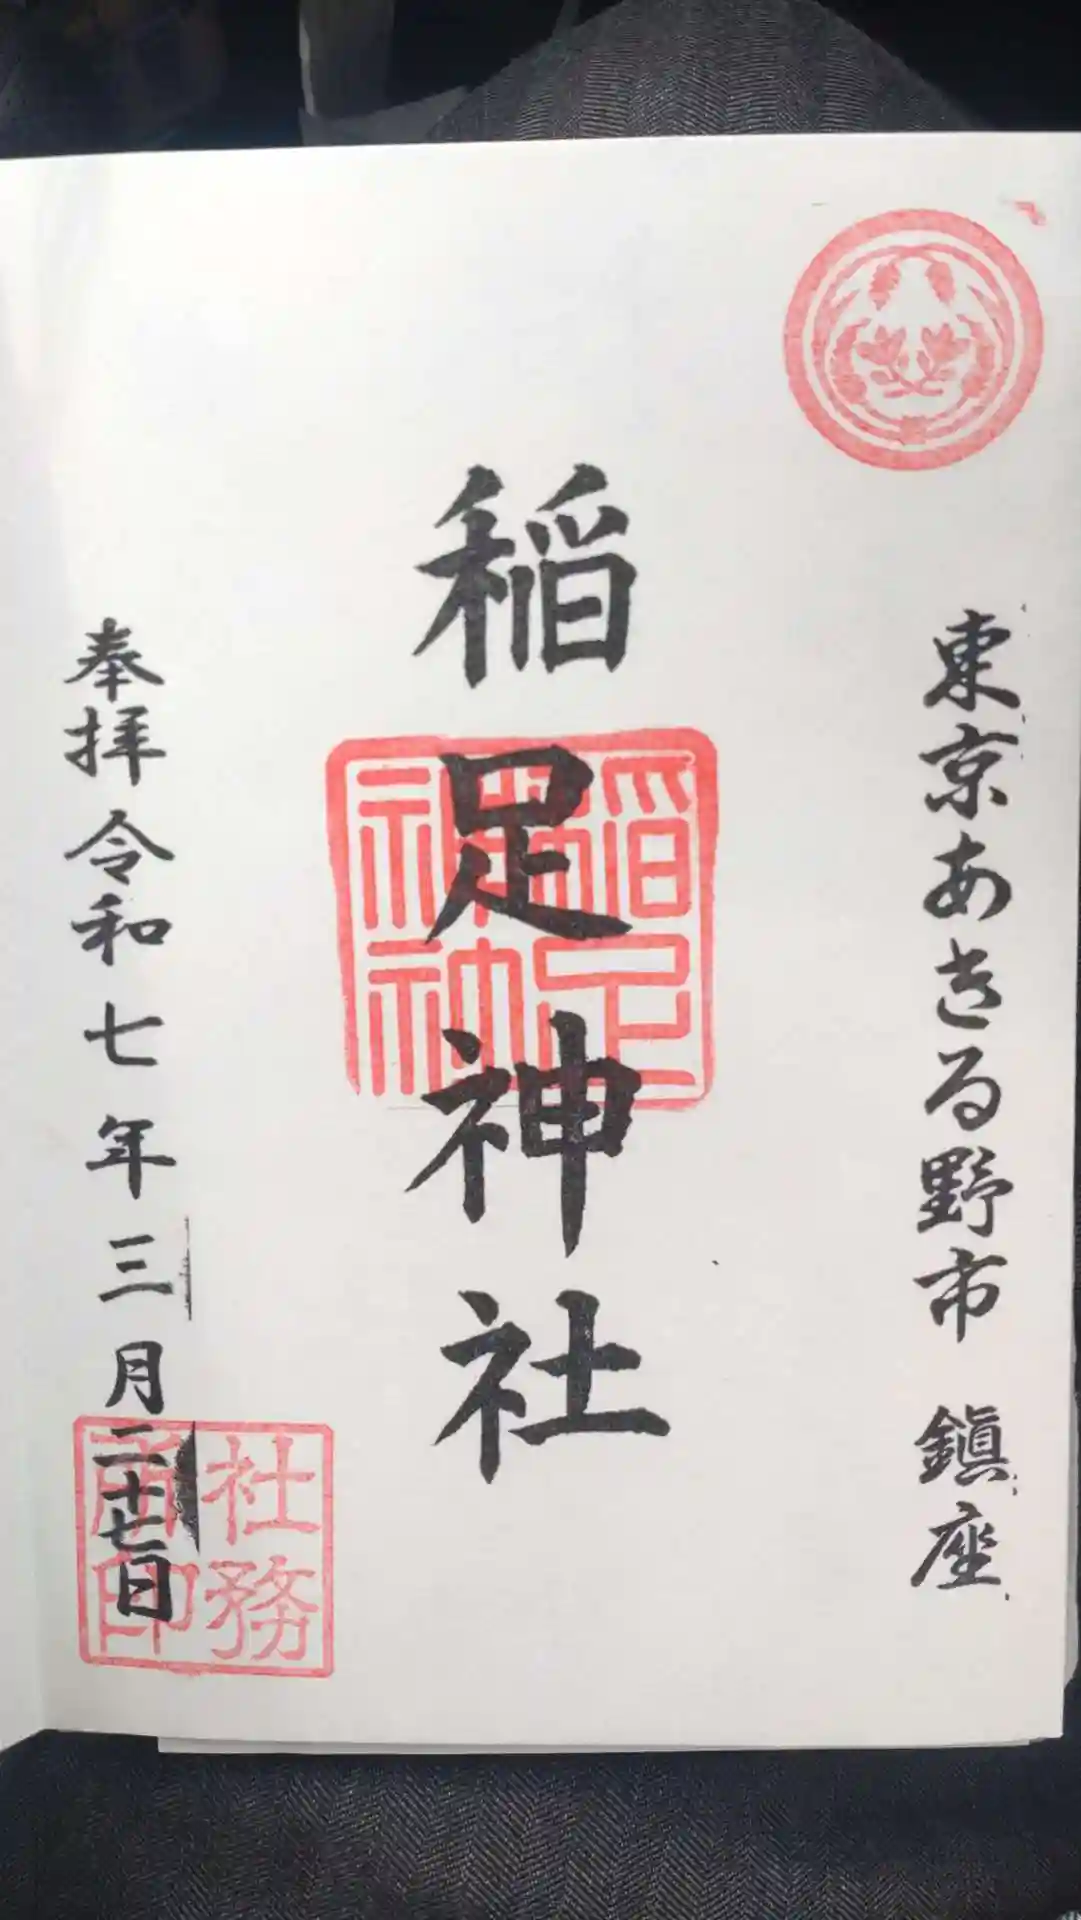 東京あきる野市 鎮座
稲足神社
奉拝 令和七年三月二十七日
社務
所印